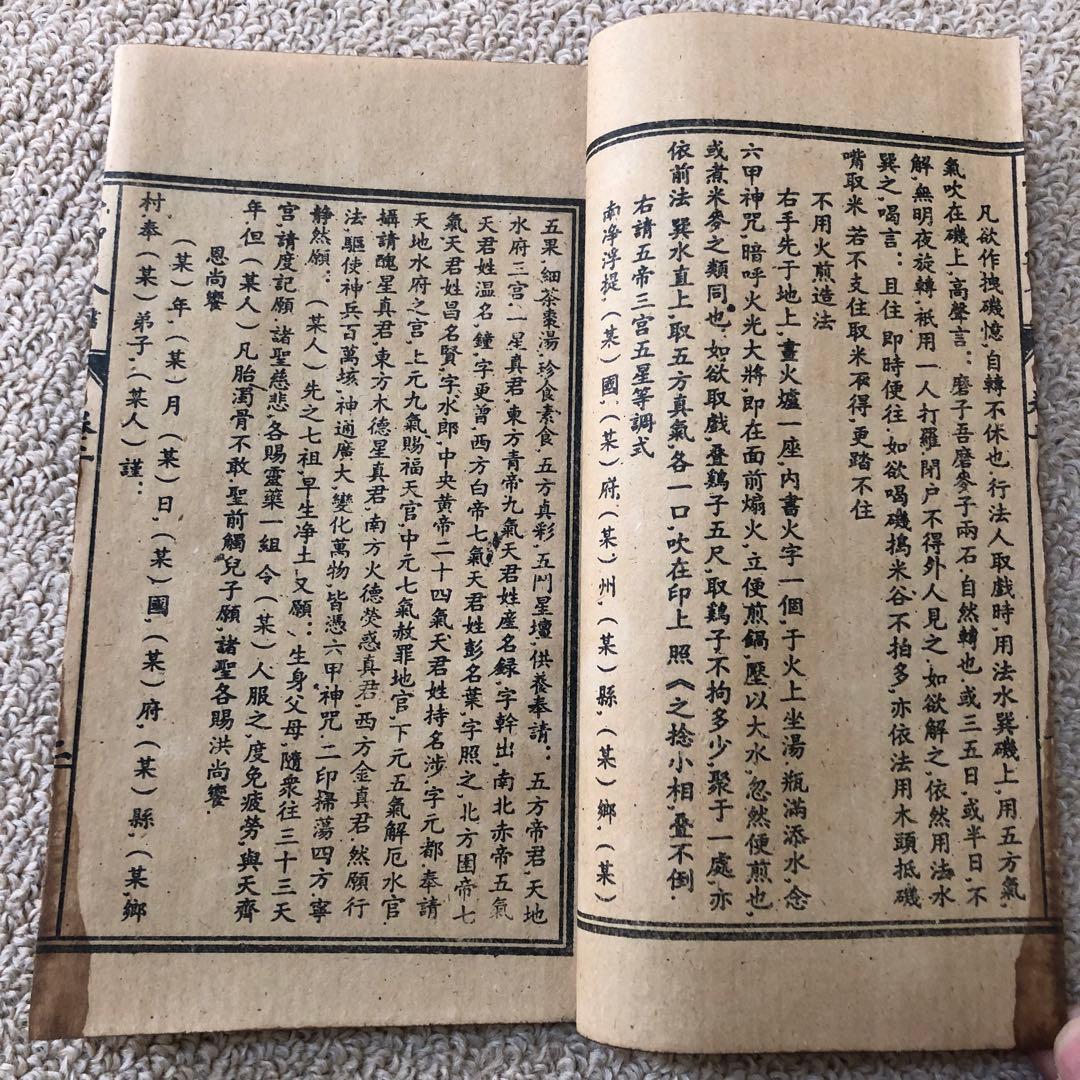 凡欲作拽磯憶，自轉不休也，行法人取戲時，用法水巽磯上，用五方氣
氣吹在磯上，高聲言：磨子吾磨麥子兩石，自然轉也，或三五日，或半日，不
解，無明夜旋轉，衹用一人打羅，閉户不得外人見之，如欲解之，依然用法水
巽之，喝言：且住，即時便往，如欲喝磯搗米，谷不拍多，亦依法用木頭抵磯
嘴取米，若不支住取米不得，更踏不住
不用火煎造法
右手先于地上，畫火爐一座，内書火字一個，于火上坐湯，瓶滿添水，念
六甲神咒，暗呼火光大將，即在面前煽火，立便煎鍋，壓以大水，忽然便煎也，
或煮米麥之類同也，如欲取戲，叠鷄子五尺，取鷄子不拘多少，聚于一處，亦
依前法，巽水直上，取五方真氣各一口，吹在印上，照《之捻小相，叠不倒．
右請五帝三宫五星等調式
南净浮提，（某）國，（某）府，（某）州，（某）縣，（某）鄉，（某）
五果，細茶棗湯，珍食素食，五方真彩，五鬥星壇，供養奉請：五方帝君，天地
水府三宫二星真君，東方青帝九氣天君姓産名録，字幹出，南北赤帝五氣
天君姓温名，鐘，字更曾，西方白帝七氣天君姓彭名葉，字照之，北方圉帝七
氣天君姓昌名賢，字水郎，中央黄帝二十四氣天君姓持名涉，字元都，奉請
天地水府之宫，上元九氣賜福天官，中元七氣赦罪地官，下元五氣解厄水官
攝請醜星真君，東方木德星真君，南方火德熒惑真君，西方金真君，然願行
法，驅使神兵百萬垓，神通廣大，變化萬物，皆憑六甲神咒，二印掃蕩四方寧
静然願：（某人）先之七祖，早生净土，又願：生身父母，隨衆往三十三天
宫，請度記願，諸聖慈悲，各賜靈藥一組，令（某）人服之，度免疲勞，與天齊
年，但（某人）凡胎濁骨不敢，聖前觸兒子願，諸聖各賜洪尚饗．
恩尚饗
（某）年，（某）月（某）日，（某）國，（某）府，（某）縣，（某）鄉
村奉（某）弟子，（某人）謹：